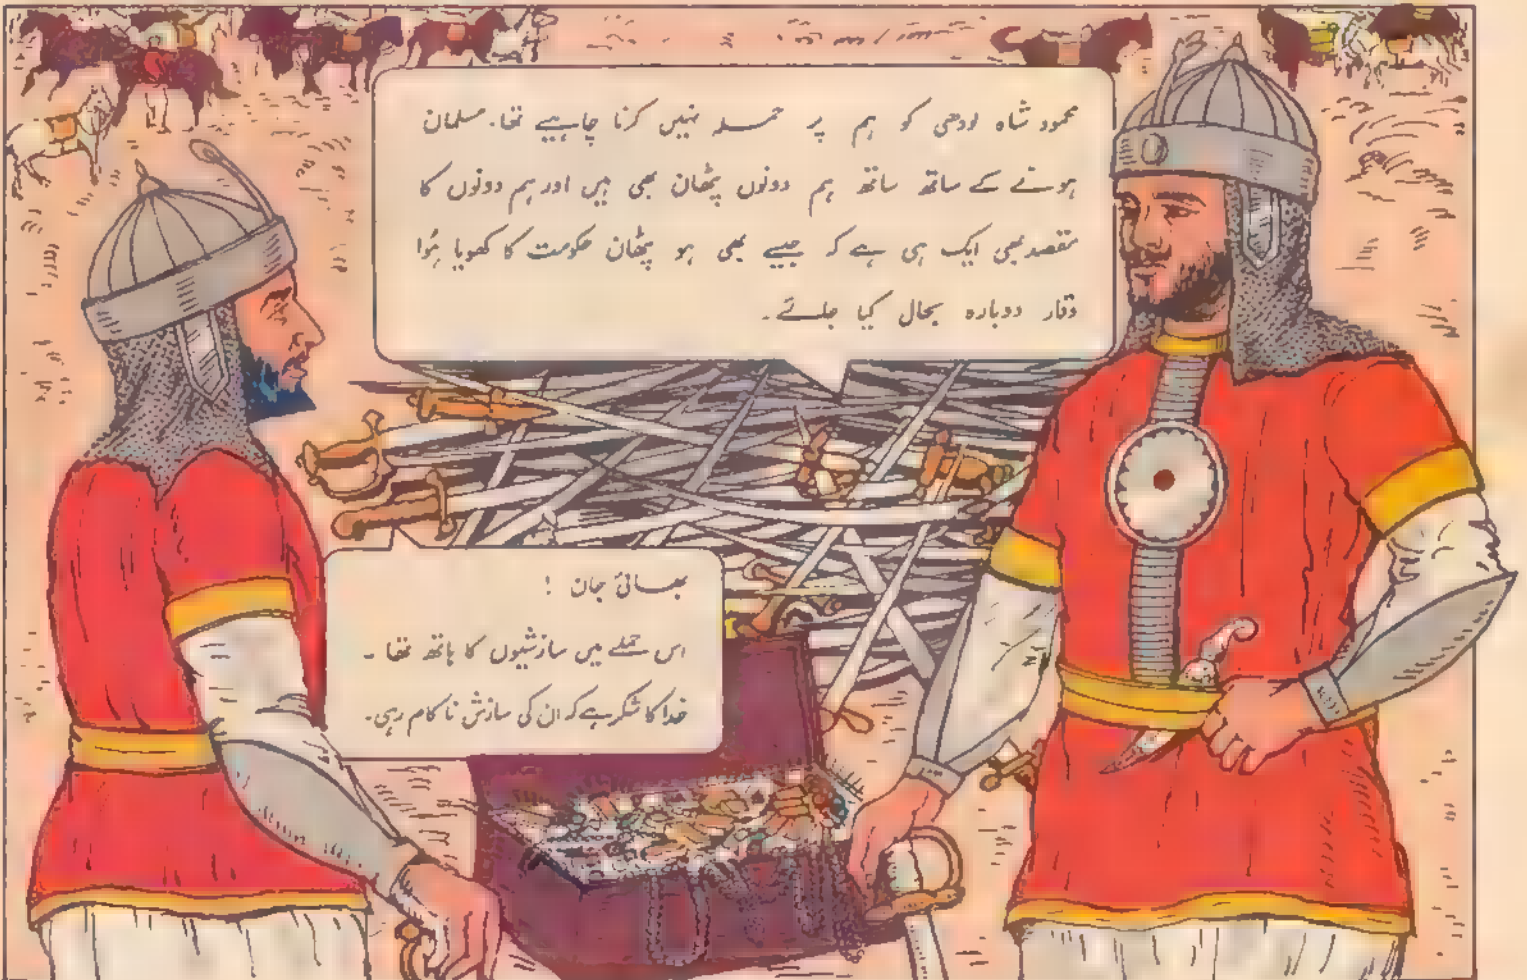 محمود شاہ لودھی کو ہم پر حملہ نہیں کرنا چاہیے تھا۔ مسلمان
ہونے کے ساتھ ساتھ ہم دونوں پٹھان بھی ہیں اور ہم دونوں کا
مقصد بھی ایک ہی ہے کہ جیسے بھی ہو پٹھان حکومت کا کھویا ہُوا
وقار دوبارہ بحال کیا جائے۔
بھائی جان !
اس حملے میں سازشیوں کا ہاتھ تھا ۔
خدا کا شکر ہے کہ ان کی سازش ناکام رہی۔